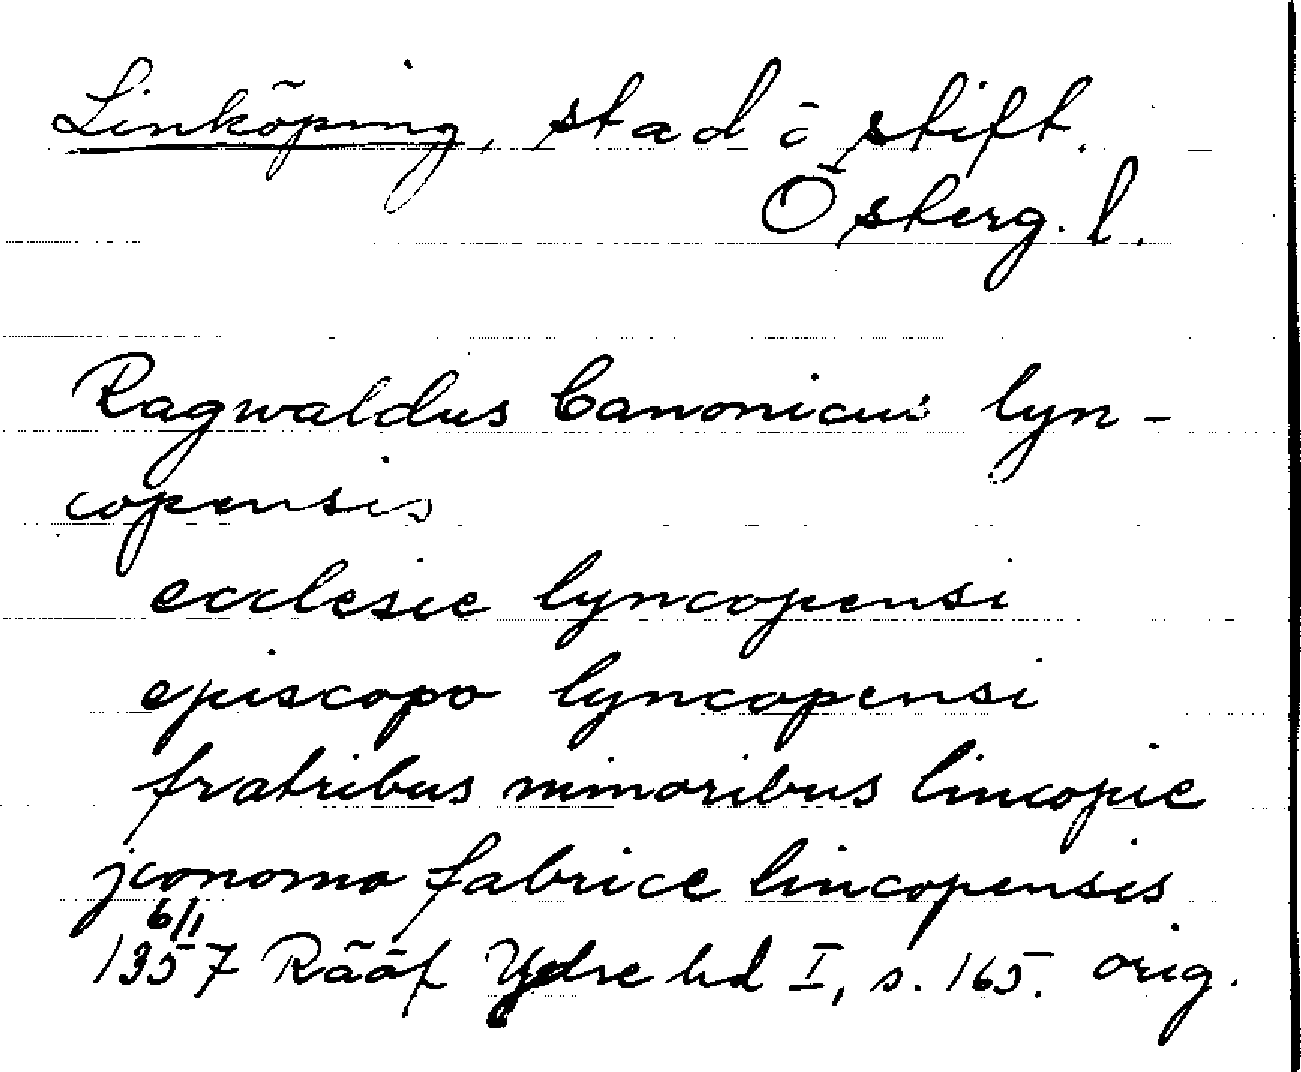 Linköping, stad o stift.
Österg. l.
Ragwaldus Canonicus lyn-
copensis
ecclesie lyncopensi
episcopo lyncopensi
fratribus minoribus lincopie
jconomo fabrice lincopensis
6/1
1357 Rääf Ydre bd I, s. 165. orig.